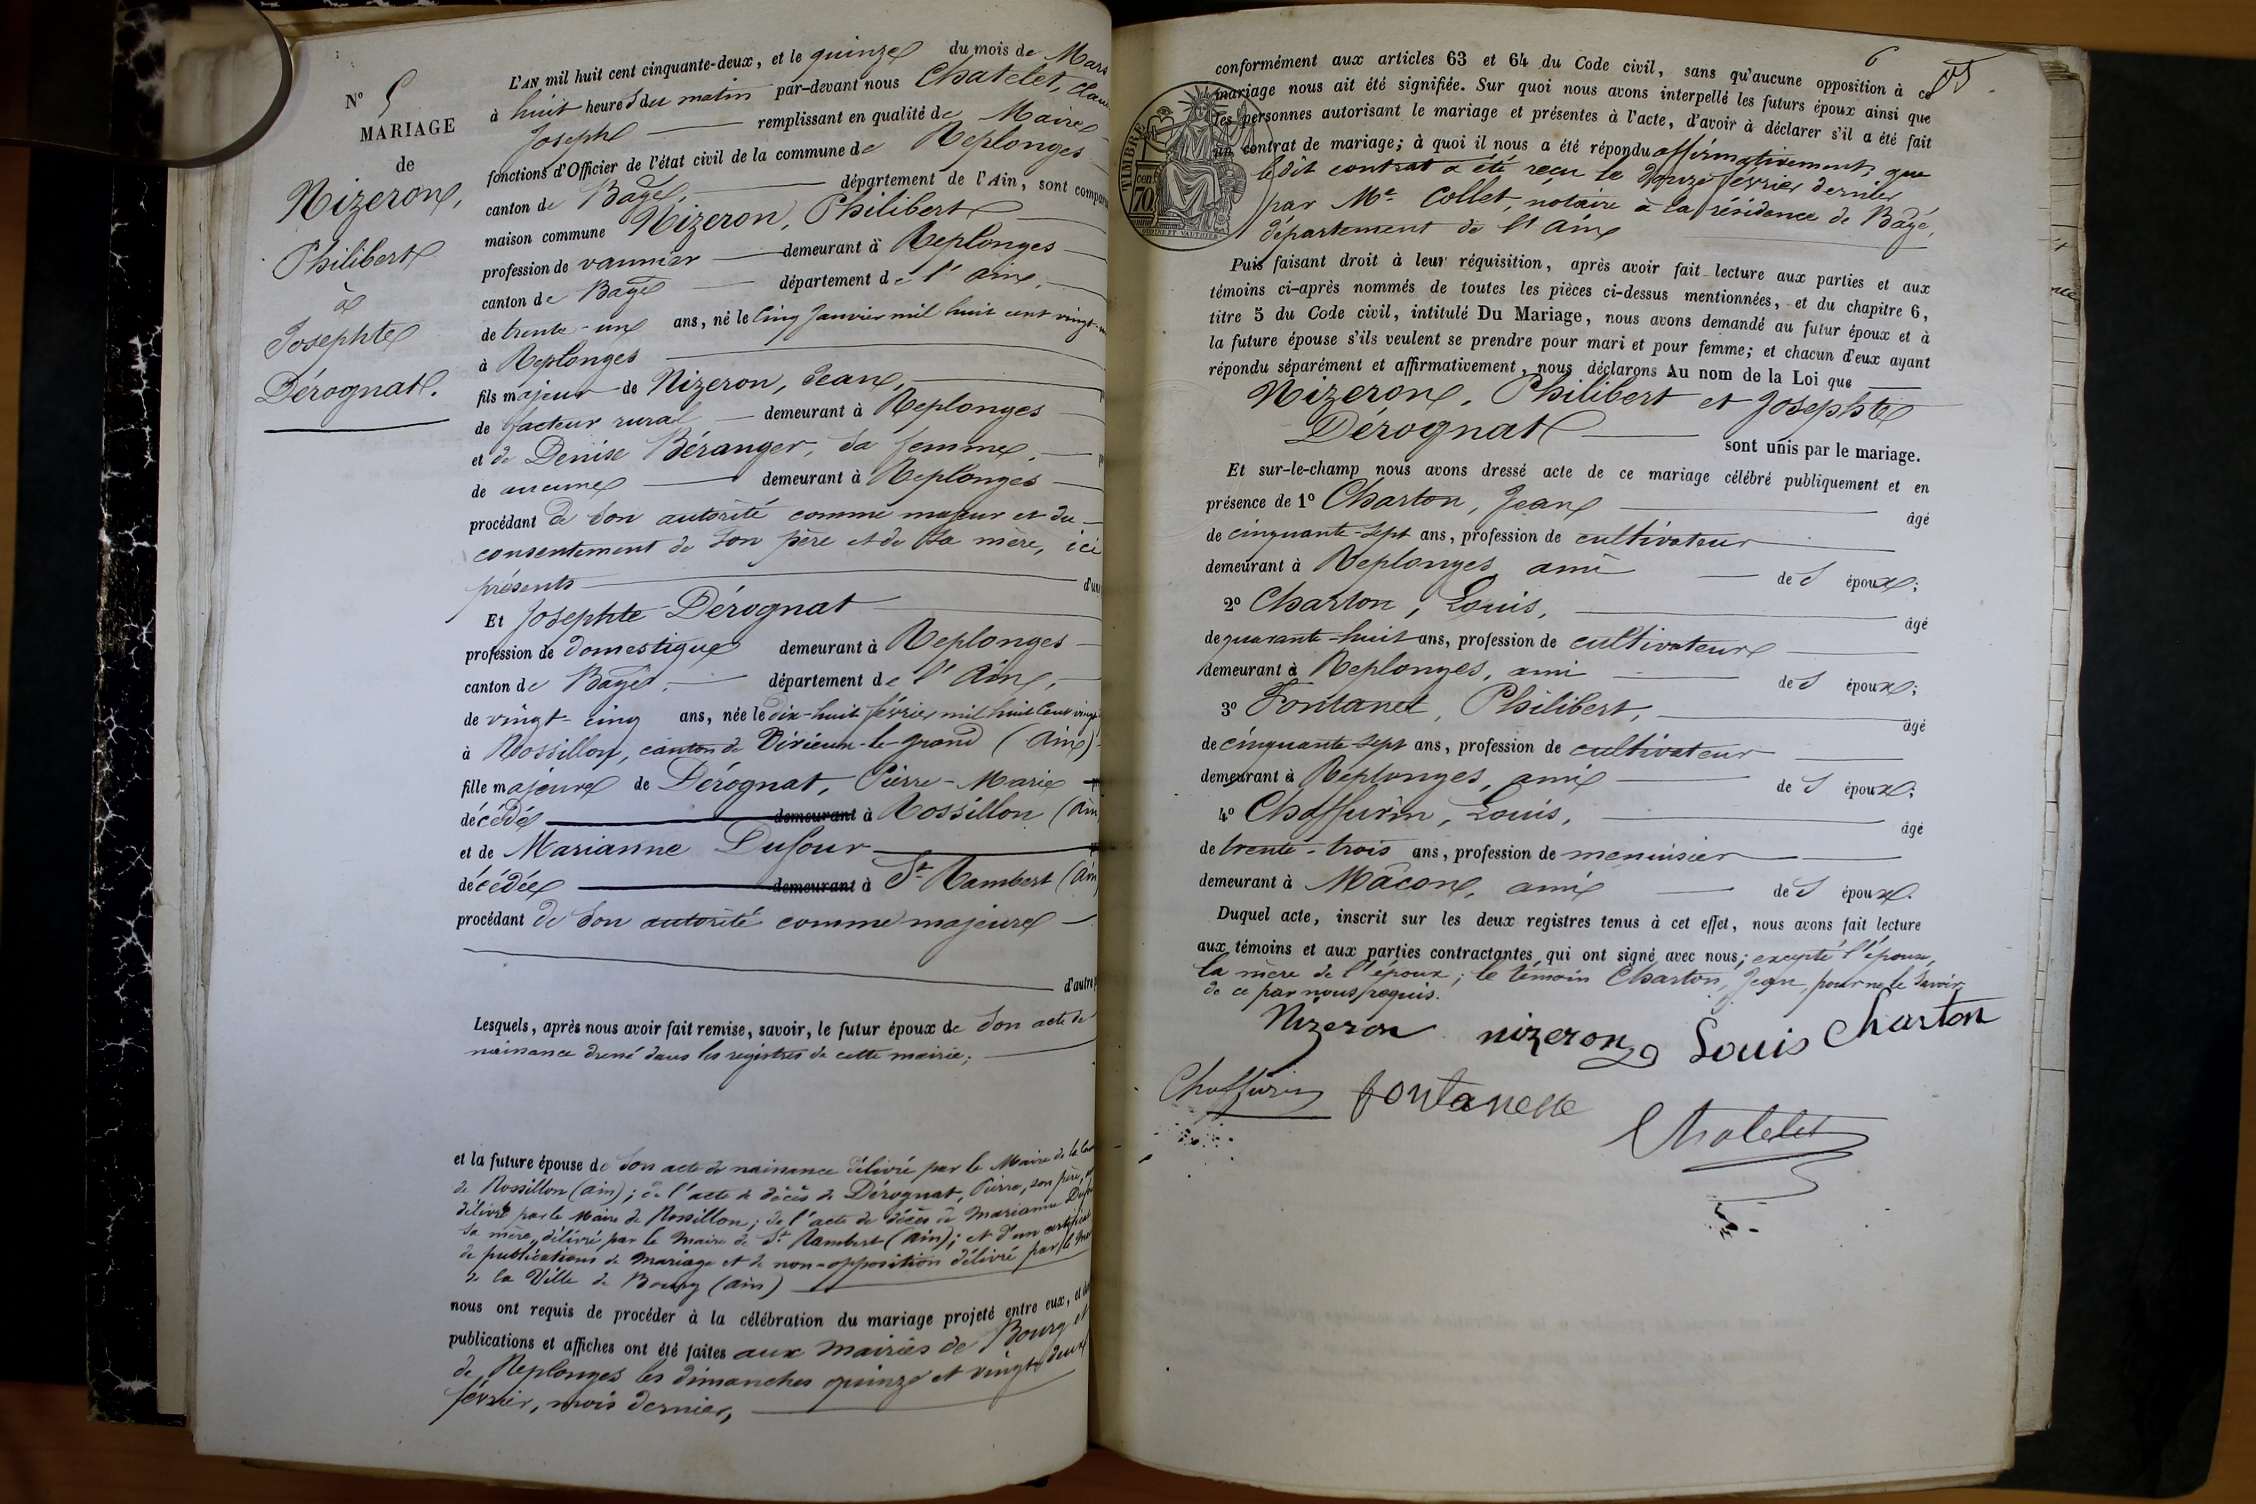 N° 5
MARIAGE
de
Nizeron,
Philibert
à
Josephte
Dérognat.
L'AN mil huit cent cinquante-deux, et le quinze du mois de Mars
à huit heures du matin par-devant nous Chatelet,
Joseph remplissant en qualité de Maire
fonctions d'Officier de l'état civil de la commune de Replonges
canton de Bagé, département de l'Ain, sont compar
maison commune Nizeron, Philibert
profession de vannier demeurant à Replonges
canton de Bagé département de l'Ain,
de trente-un ans, né le cinq Janvier mil huit cent vingt-un
à Replonges
fils majeur de Nizeron, Jean,
de facteur rural demeurant à Replonges
et de Denise Béranger, sa femme,
de aucune demeurant à Replonges
procédant de son autorité comme majeur et du
consentement de son père et de sa mère, ici
présents d'une
Et Josephte Dérognat
profession de domestique demeurant à Replonges
canton de Bagé, département de l'Ain,
de vingt-cinq ans, née le dix-huit février mil huit cent vingt
à Rossillon, canton de Virieux-le-grand (Ain)
fille majeure de Dérognat, Pierre-Marie
décédé demeurant à Rossillon (Ain
et de Marianne Dufour
décédée demeurant à St Rambert (Ain
procédant de son autorité comme majeure
d'autre p
Lesquels, après nous avoir fait remise, savoir, le futur époux de son acte de
naissance dressé dans les registres de cette mairie;
et la future épouse de son acte de naissance délivré par le Maire de la
de Rossillon (ain); de l'acte de décès de Dérognat, Pierre, son père,
délivré par le Maire de Rossillon; de l'acte de décès de Marianne Dufour
sa mère, délivré par le Maire de St Rambert (ain); et d'un certificat
de publications de Mariage et de non-opposition délivré par le Maire
de la Ville de Bourg (ain)
nous ont requis de procéder à la célébration du mariage projeté entre eux, et
publications et affiches ont été faites aux Mairies de Bourg et
de Replonges les dimanches quinze et vingt-deux
février, mois dernier,
6
conformément aux articles 63 et 64 du Code civil, sans qu'aucune opposition à ce
mariage nous ait été signifiée. Sur quoi nous avons interpellé les futurs époux ainsi que
les personnes autorisant le mariage et présentes à l'acte, d'avoir à déclarer s'il a été fait
un contrat de mariage; à quoi il nous a été répondu affirmativement, que
ledit contrat a été reçu le douze février dernier
par Me Collet, notaire à la résidence de Bagé,
département de l'Ain
TIMBRE
cen.
70
Puis faisant droit à leur réquisition, après avoir fait lecture aux parties et aux
témoins ci-après nommés de toutes les pièces ci-dessus mentionnées, et du chapitre 6,
titre 5 du Code civil, intitulé Du Mariage, nous avons demandé au futur époux et à
la future épouse s'ils veulent se prendre pour mari et pour femme; et chacun d'eux ayant
répondu séparément et affirmativement, nous déclarons Au nom de la Loi que
Nizeron, Philibert et Josephte
Dérognat sont unis par le mariage.
Et sur-le-champ nous avons dressé acte de ce mariage célébré publiquement et en
présence de 1° Charton, Jean âgé
de cinquante-sept ans, profession de cultivateur
demeurant à Replonges, ami des époux;
2° Charton, Louis, âgé
de quarante-huit ans, profession de cultivateur
demeurant à Replonges, ami des époux;
3° Fontanet, Philibert, âgé
de cinquante-sept ans, profession de cultivateur
demeurant à Replonges, ami des époux;
4° Chaffurin, Louis, âgé
de trente-trois ans, profession de menuisier
demeurant à Mâcon, ami des époux.
Duquel acte, inscrit sur les deux registres tenus à cet effet, nous avons fait lecture
aux témoins et aux parties contractantes qui ont signé avec nous; excepté l'épouse,
la mère de l'époux; le témoin Charton, Jean, pour ne le savoir
de ce par nous requis.
Nizeron nizeron Louis Charton
Chaffurin fontanelle
Chatelet